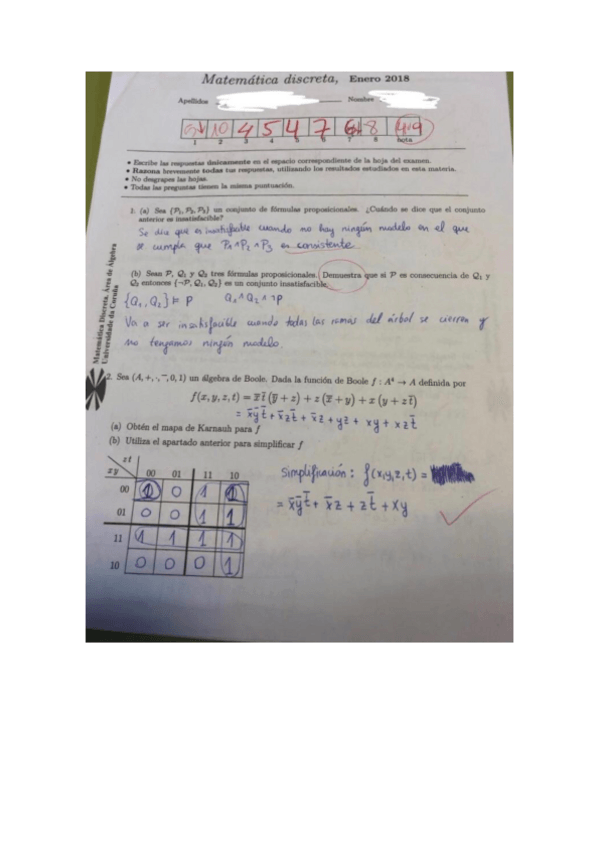 Matemática discreta, Enero 2018
Apellidos
Nombre
10 4 5 4 7 8 4,9
1 2 3 4 5 6 7 8 nota
• Escribe las respuestas únicamente en el espacio correspondiente de la hoja del examen.
• Razona brevemente todas tus respuestas, utilizando los resultados estudiados en esta materia.
• No desgrapes las hojas.
• Todas las preguntas tienen la misma puntuación.
1. (a) Sea {P₁, P₂, P₃} un conjunto de fórmulas proposicionales. ¿Cuándo se dice que el conjunto
anterior es insatisfacible?
Se dice que es insatisfacible cuando no hay ningún modelo en el que
se cumpla que P₁∧P₂∧P₃ es consistente.
(b) Sean P, Q₁ y Q₂ tres fórmulas proposicionales. Demuestra que si P es consecuencia de Q₁ y
Q₂ entonces {¬P, Q₁, Q₂} es un conjunto insatisfacible.
{Q₁, Q₂} ⊨ P Q₁∧Q₂∧¬P
Va a ser insatisfacible cuando todas las ramas del árbol se cierren y
no tengamos ningún modelo.
Matemática Discreta, Área de Álgebra
Universidade da Coruña
2. Sea (A, +, ·, ‾, 0, 1) un álgebra de Boole. Dada la función de Boole f : A⁴ → A definida por
f(x, y, z, t) = x̅ t̅ (y̅ + z) + z (x̅ + y) + x (y + z t̅)
= x̅y̅t̅ + x̅zt̅ + x̅z + yz + xy + xzt̅
(a) Obtén el mapa de Karnauh para f
(b) Utiliza el apartado anterior para simplificar f
zt
xy 00 01 11 10
00 1 0 1 1
01 0 0 1 1
11 1 1 1 1
10 0 0 0 1
Simplificación: f(x,y,z,t) =
= x̅y̅t̅ + x̅z + zt̅ + xy